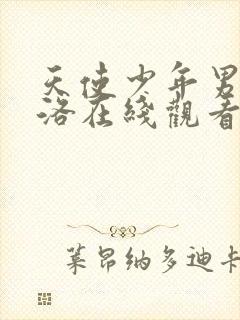 天使少年男
洛在綫觀看
莱昂纳多迪卡